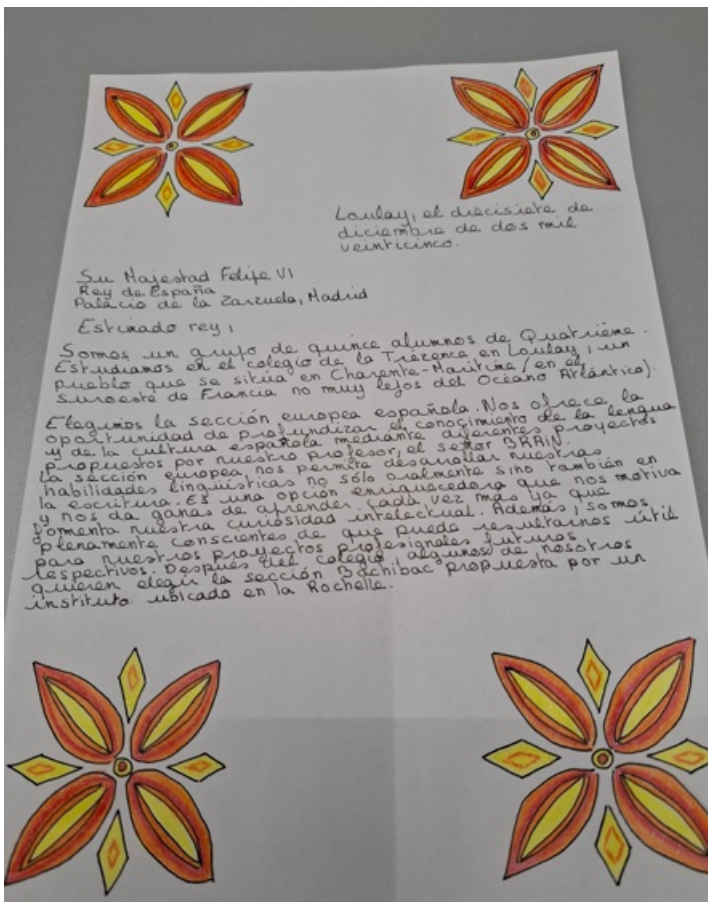 Loulay, el diecisiete de
diciembre de dos mil
veinticinco.
Su Majestad Felipe VI
Rey de España
Palacio de la Zarzuela, Madrid
Estimado rey,
Somos un grupo de quince alumnos de Quatrième.
Estudiamos en el colegio de la Trézence en Loulay, un
pueblo que se sitúa en Charente-Maritime (en el
suroeste de Francia no muy lejos del Océano Atlántico).
Elegimos la sección europea española. Nos ofrece la
oportunidad de profundizar el conocimiento de la lengua
y de la cultura española mediante diferentes proyectos
propuestos por nuestro profesor, el señor BRAIN.
La sección europea nos permite desarollar nuestras
habilidades lingüísticas no sólo oralmente sino también en
la escritura. Es una opción enriquecedora que nos motiva
y nos da ganas de aprender cada vez más ya que
fomenta nuestra curiosidad intelectual. Además, somos
plenamente conscientes de que puede resultarnos útil
para nuestros proyectos profesionales futuros
respectivos. Después del colegio, algunos de nosotros
quieren elegir la sección Bachibac propuesta por un
instituto ubicado en la Rochelle.